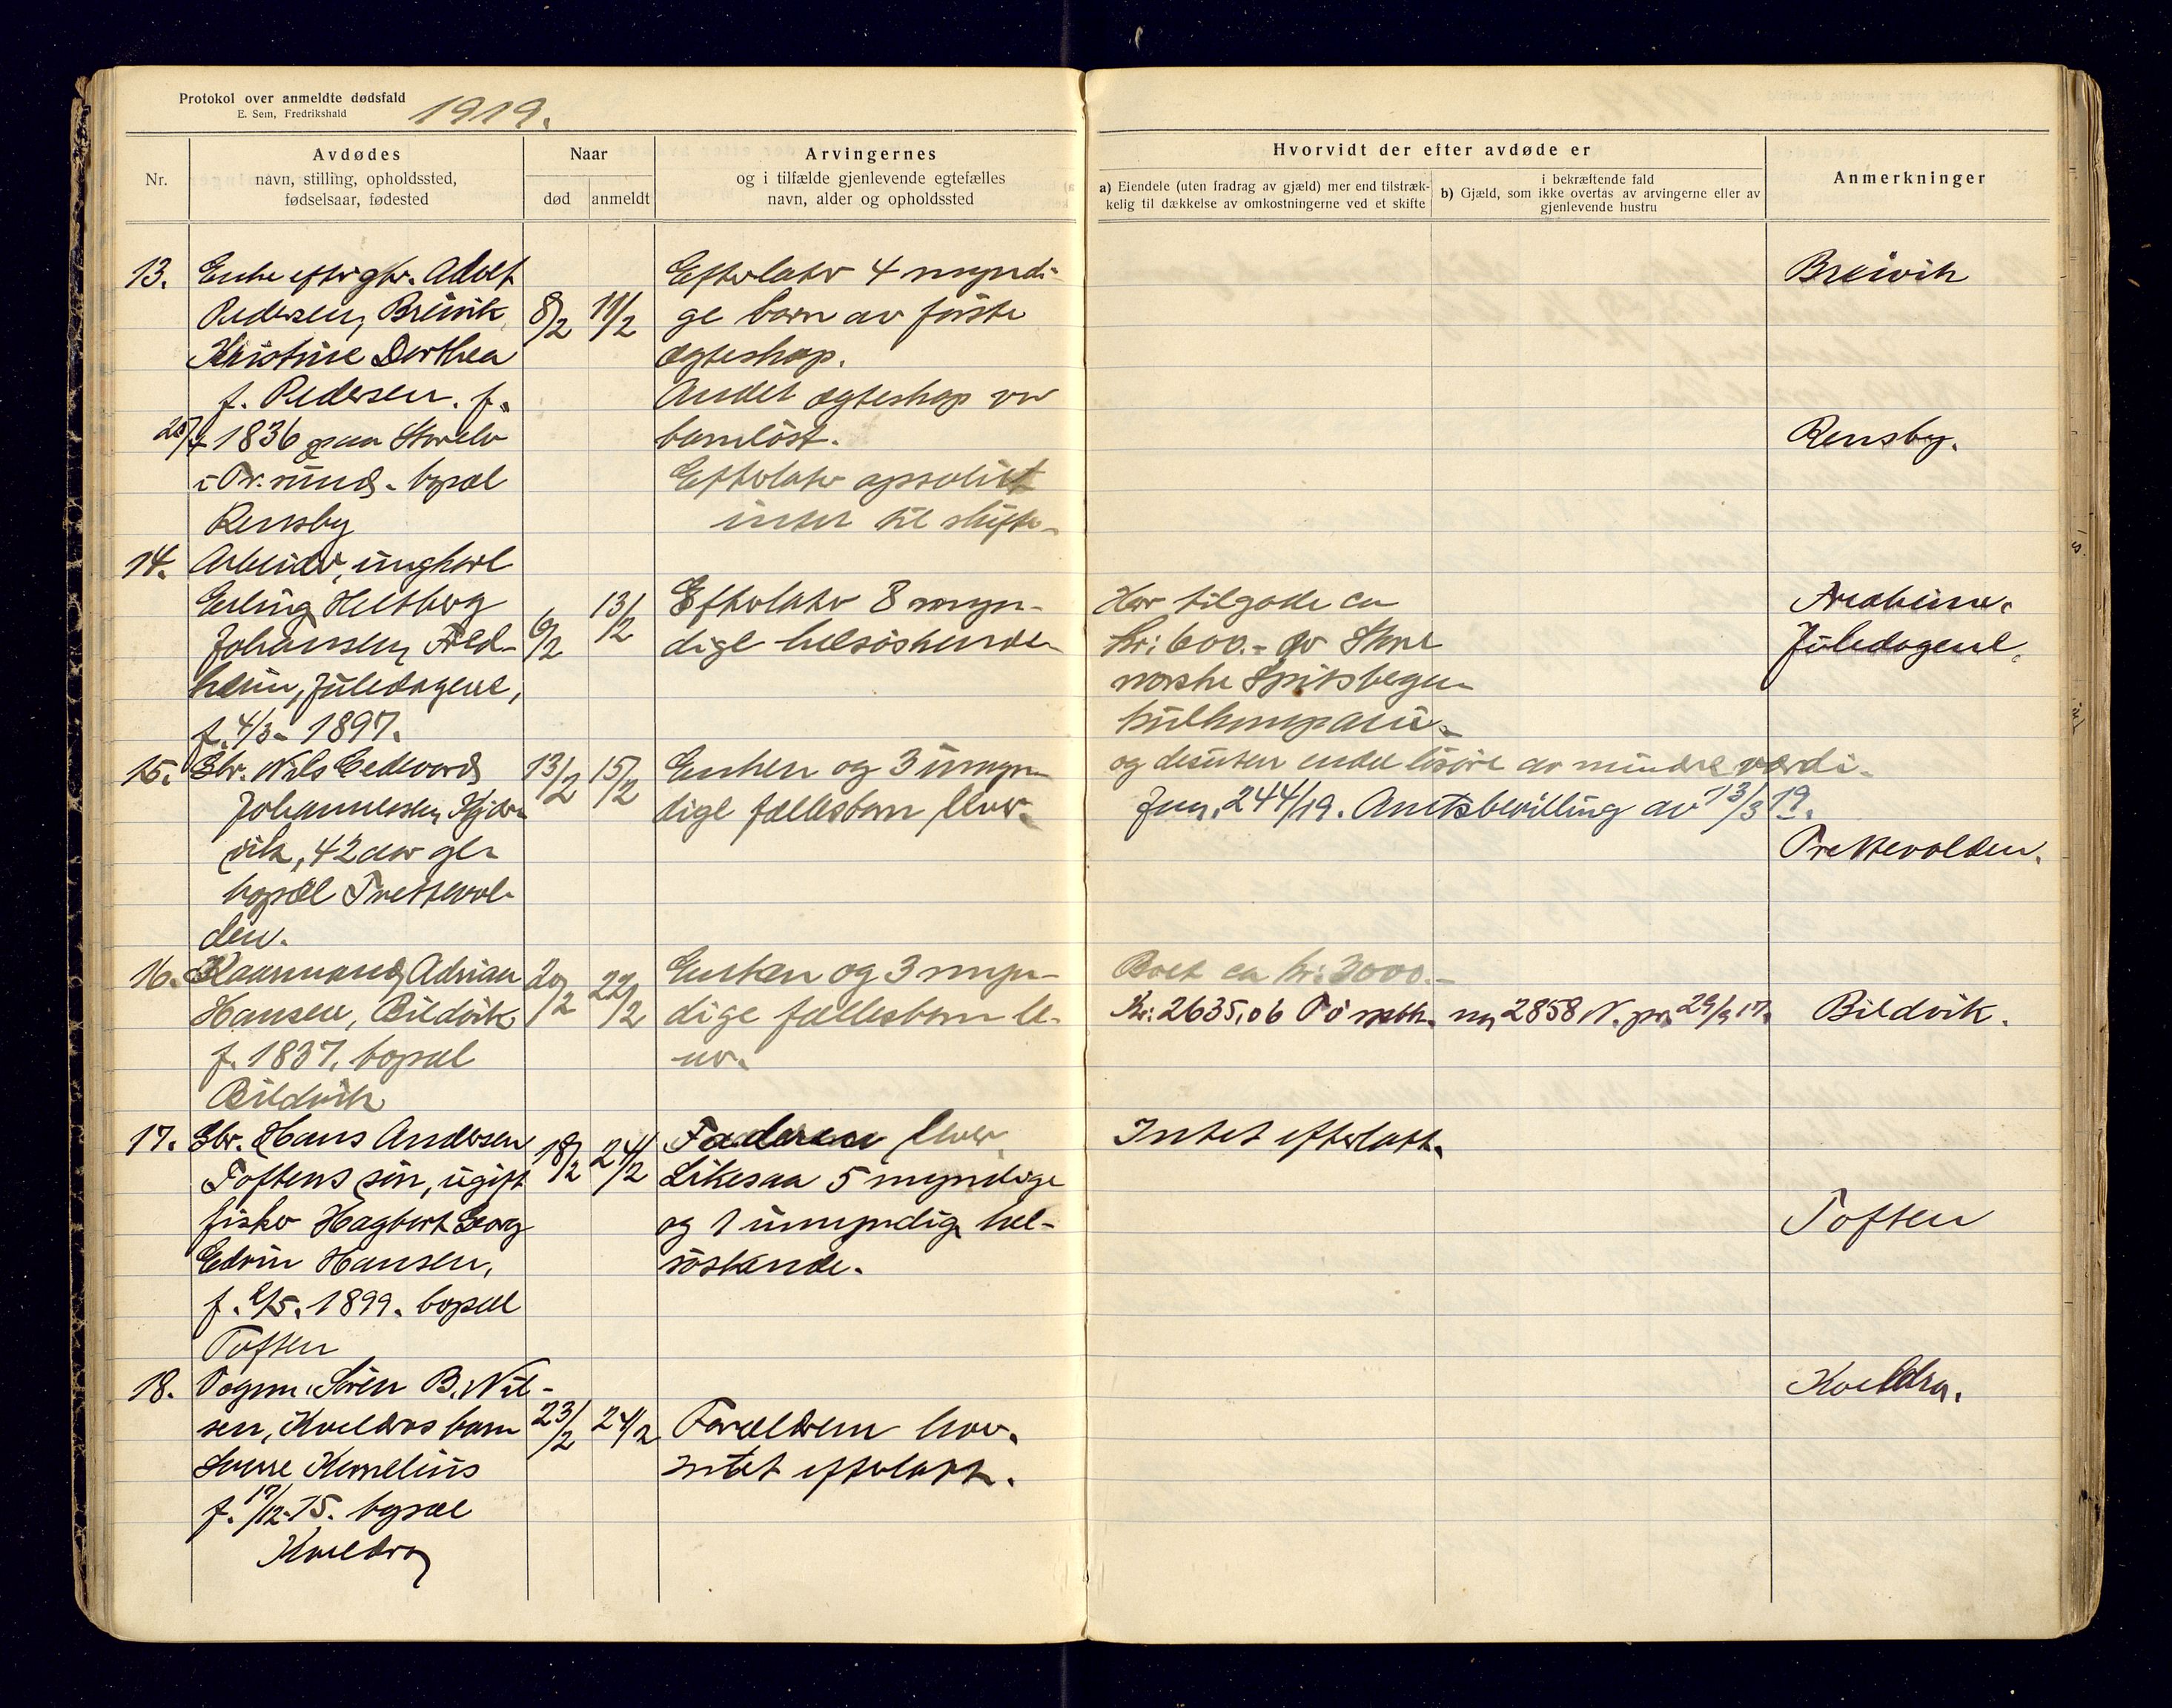 Protokol over anmeldte dødsfald
E. Sem, Fredrikshald
1919.
Nr.
Avdødes
navn, stilling, opholdssted,
fødselsaar, fødested
Naar
død
anmeldt
Arvingernes
og i tilfælde gjenlevende egtefælles
navn, alder og opholdssted
Hvorvidt der efter avdøde er
a) Eiendele (uten fradrag av gjæld) mer end tilstræk-
kelig til dækkelse av omkostningerne ved et skifte
i bekræftende fald
b) Gjæld, som ikke overtas av arvingerne eller av
gjenlevende hustru
Anmerkninger
13.
Enke efter gbr. Adolf
Pedersen, Breivik
Kristine Dorthea
f. Pedersen. f.
1836 paa Storelv
bopæl
Rensby
8/2
11/2
Efterlater 4 myndi-
ge barn av første
egteskap.
Andet egteskap var
barnløst.
Efterlater apsolut
intet til skifte.
Breivik
Rensby.
14.
Arbeider, ungkarl
Erling Heltberg
Johansen, Ared-
heim, Juledagene,
f. 4/3- 1897.
6/2
13/2
Efterlater 8 myn-
dige helsøskende.
Har tilgode ca
kr: 600.- av Store
norske Spitsbergen
kulkompani.
og desuten endel løsøre av mindre værdi.
Juledagene.
15.
Gbr. Nils Eedevard
Johannessen,
vik, 42 aar gl.
bopæl Trettevol-
den.
13/2
15/2
Enken og 3 umyn-
dige fællesbarn lever.
Jnr. 244/19. Amtsbevilling av 13/3 19.
Trettevolden.
16.
Kaarmand, Adrian
Hansen, Bildvik
f. 1837. bopæl
Bildvik
20/2
22/2
Enken og 3 myn-
dige fællesbarn le-
ver.
Boet ca kr: 3000.-
Kr: 2635,06 2858 N.
Bildvik.
17.
Gbr. Hans Andersen
Toftens søn, ugift
fisker Hagbart Georg
Edvin Hansen,
1899. bopæl
Toften
18/2
24/2
Faderen lever
Likesaa 5 myndige
og 1 umyndig hel-
søskende.
Intet efterlatt.
Toften
18.
Søren B. Nil-
sen, Kveldros barn
Sverre Kornelius
f. 17/12-15. bopæl
Kveldro
23/2
24/2
Forældrene lever.
Intet efterlatt.
Kveldro.